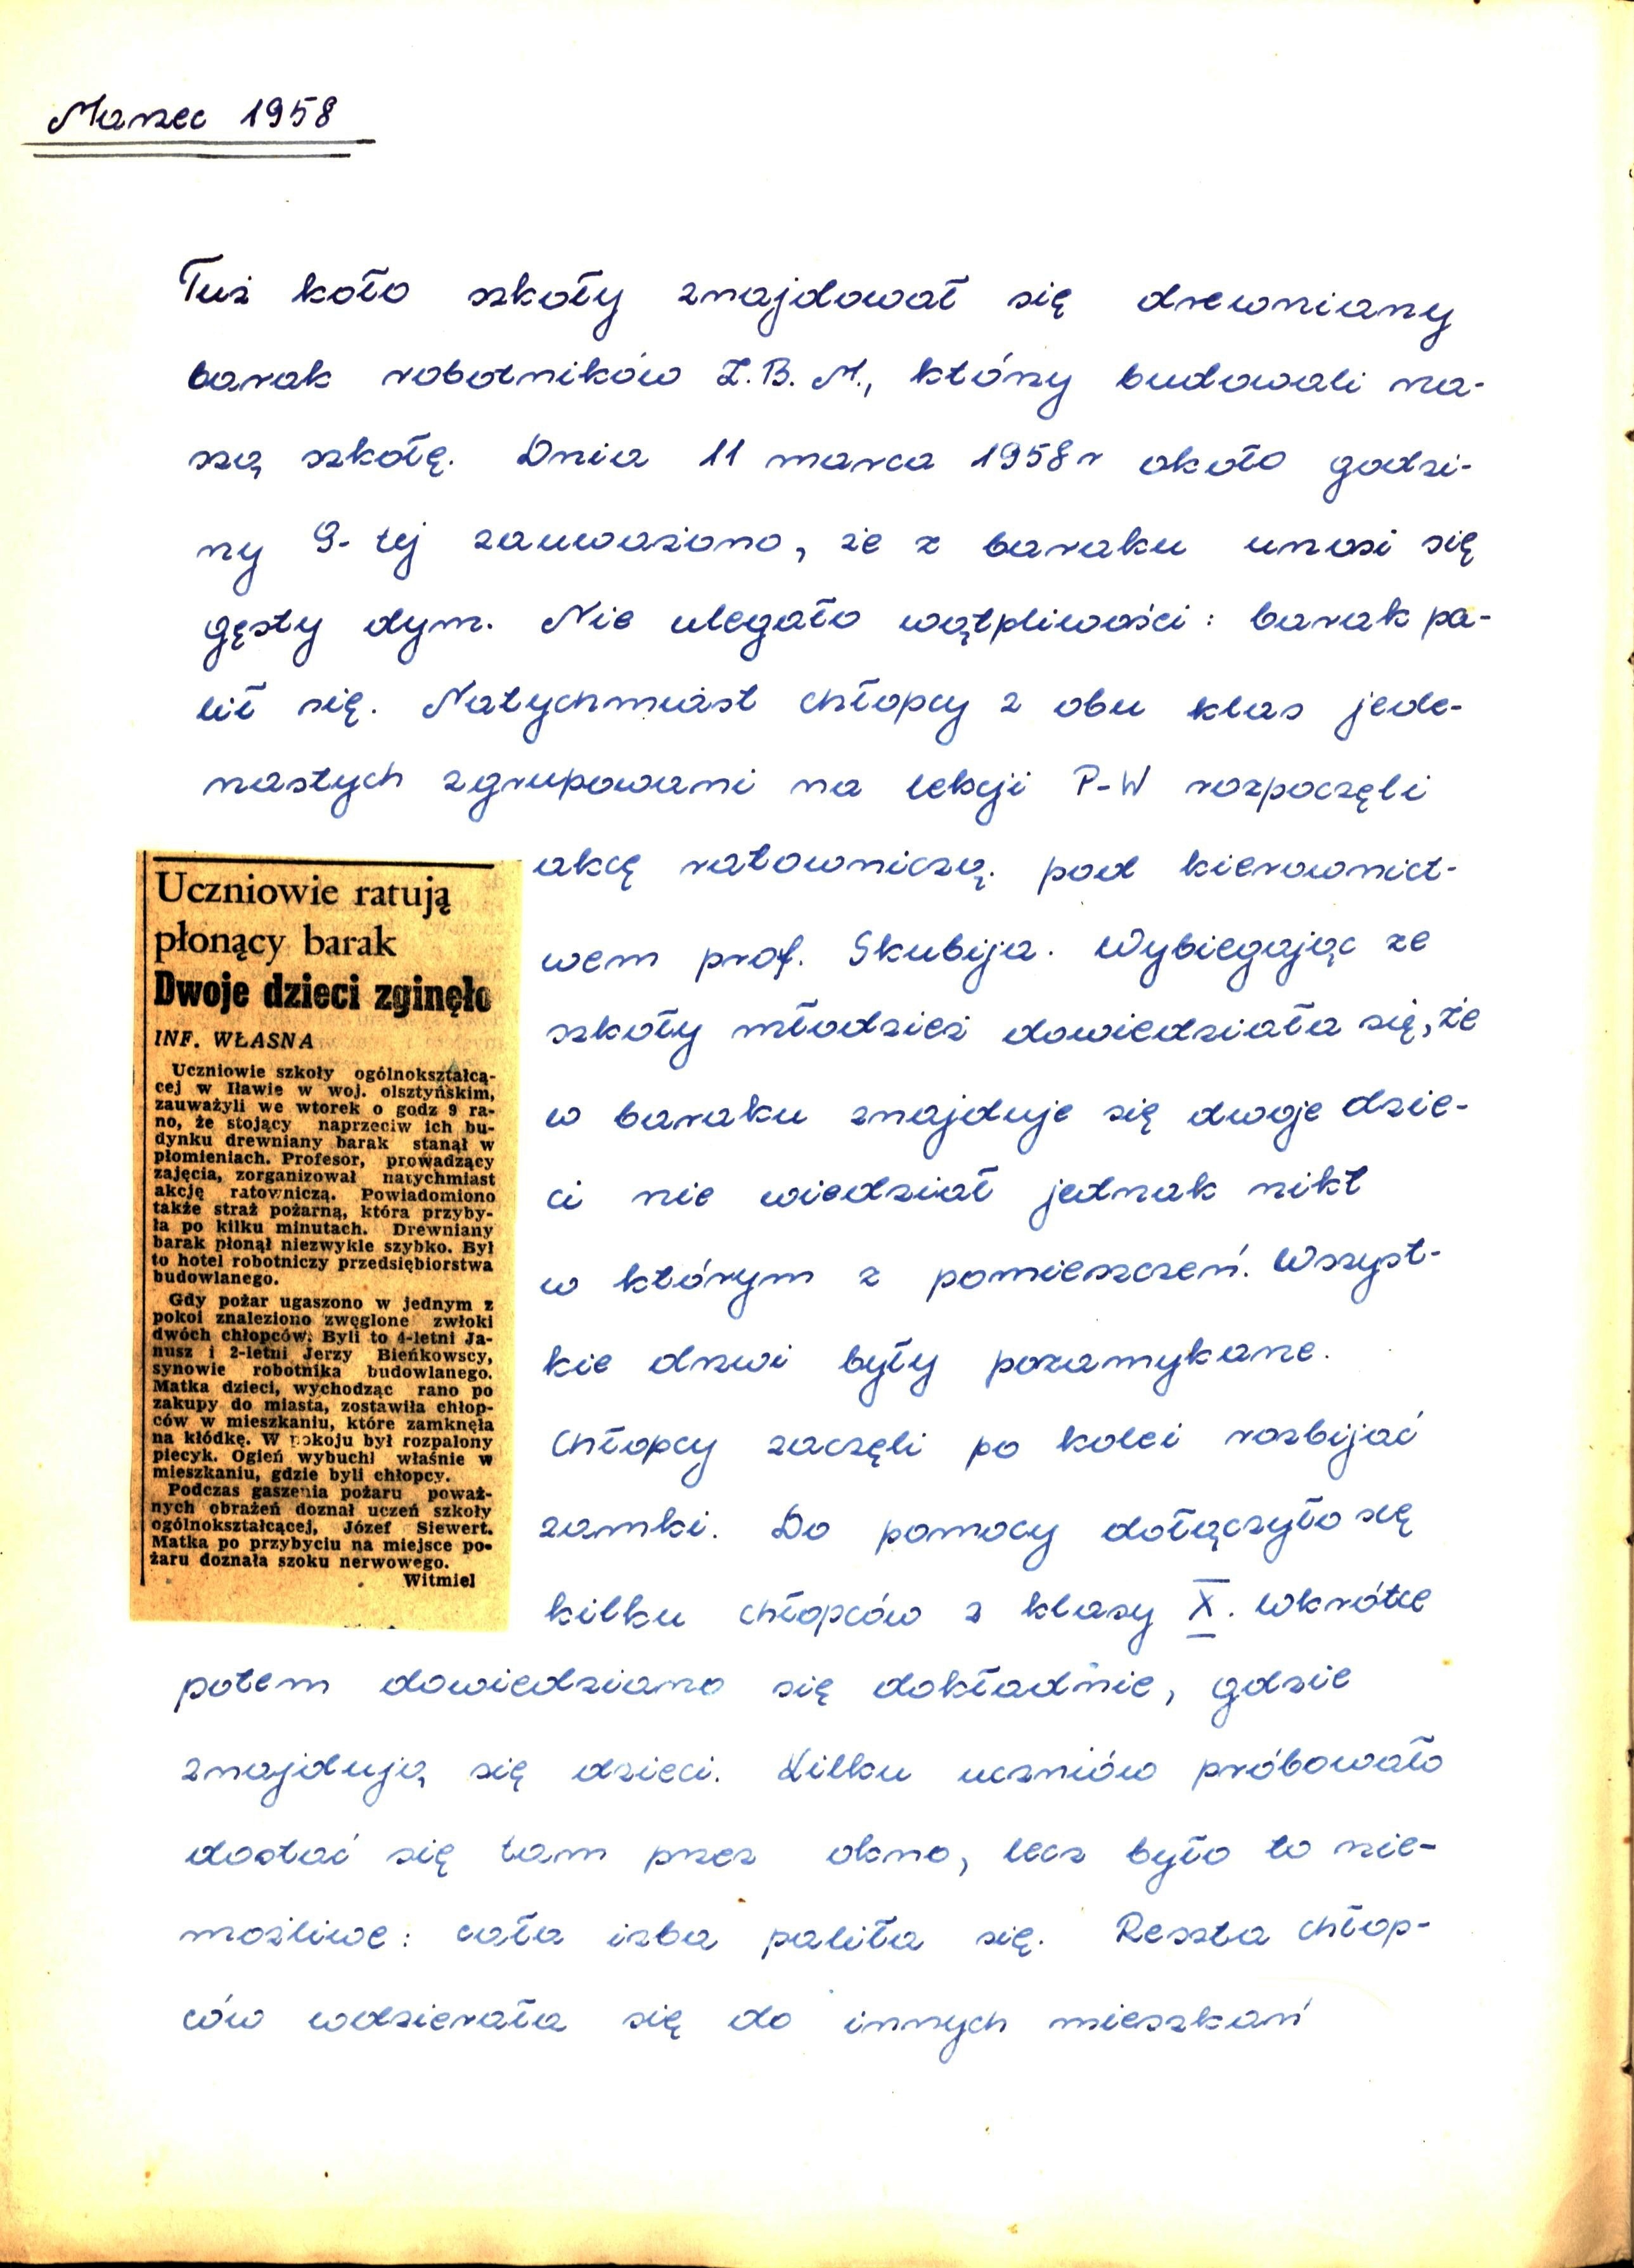 Marzec 1958
Tuż koło szkoły znajdował się drewniany
barak robotników Z.B.M., którzy budowali na-
szą szkołę. Dnia 11 marca 1958r około godzi-
ny 9-tej zauważono, że z baraku unosi się
gęsty dym. Nie ulegało wątpliwości: barak pa-
lił się. Natychmiast chłopcy z obu klas jede-
nastych zgrupowani na lekcji P-W rozpoczęli
akcę ratowniczą pod kierownict-
wem prof. Skubija. Wybiegając ze
szkoły młodzież dowiedziała się, że
w baraku znajduje się dwoje dzie-
ci nie wiedział jednak nikt
w którym z pomieszczeń. Wszyst-
kie drzwi były pozamykane.
Chłopcy zaczęli po kolei rozbijać
zamki. Do pomocy dołączyło się
kilku chłopców z klasy X. Wkrótce
potem dowiedziano się dokładnie, gdzie
znajdują się dzieci. Kilku uczniów próbowało
dostać się tam przez okno, lecz było to nie-
możliwe: cała izba paliła się. Reszta chłop-
ców wdzierała się do innych mieszkań
Uczniowie ratują
płonący barak
Dwoje dzieci zginęło
INF. WŁASNA
Uczniowie szkoły ogólnokształcą-
cej w Iławie w woj. olsztyńskim,
zauważyli we wtorek o godz 9 ra-
no, że stojący naprzeciw ich bu-
dynku drewniany barak stanął w
płomieniach. Profesor, prowadzący
zajęcia, zorganizował natychmiast
akcję ratowniczą. Powiadomiono
także straż pożarną, która przyby-
ła po kilku minutach. Drewniany
barak płonął niezwykle szybko. Był
to hotel robotniczy przedsiębiorstwa
budowlanego.
Gdy pożar ugaszono w jednym z
pokoi znaleziono zwęglone zwłoki
dwóch chłopców. Byli to 4-letni Ja-
nusz i 2-letni Jerzy Bieńkowscy,
synowie robotnika budowlanego.
Matka dzieci, wychodząc rano po
zakupy do miasta, zostawiła chłop-
ców w mieszkaniu, które zamknęła
na kłódkę. W pokoju był rozpalony
piecyk. Ogień wybuchł właśnie w
mieszkaniu, gdzie byli chłopcy.
Podczas gaszenia pożaru poważ-
nych obrażeń doznał uczeń szkoły
ogólnokształcącej, Józef Siewert.
Matka po przybyciu na miejsce po-
żaru doznała szoku nerwowego.
Witmiel